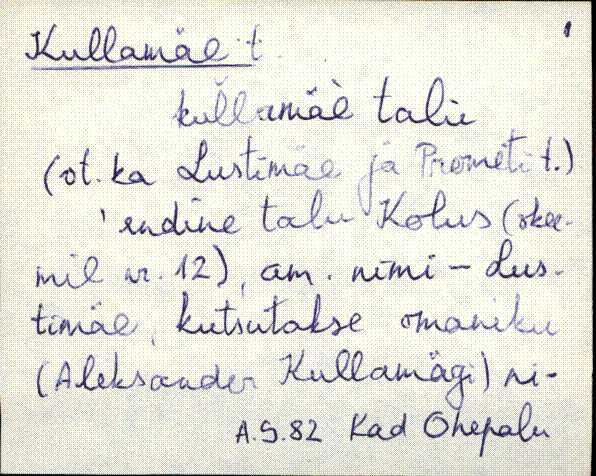 1
Kullamäe t.
kullamäe̮ talu
(vt. ka Lustimäe ja Prometi t.)
'endine talu Kolus (skee-
mil nr. 12), am. nimi – Lus-
timäe, kutsutakse omaniku
(Aleksander Kullamägi) ni-
A.S.82 Kad Ohepalu